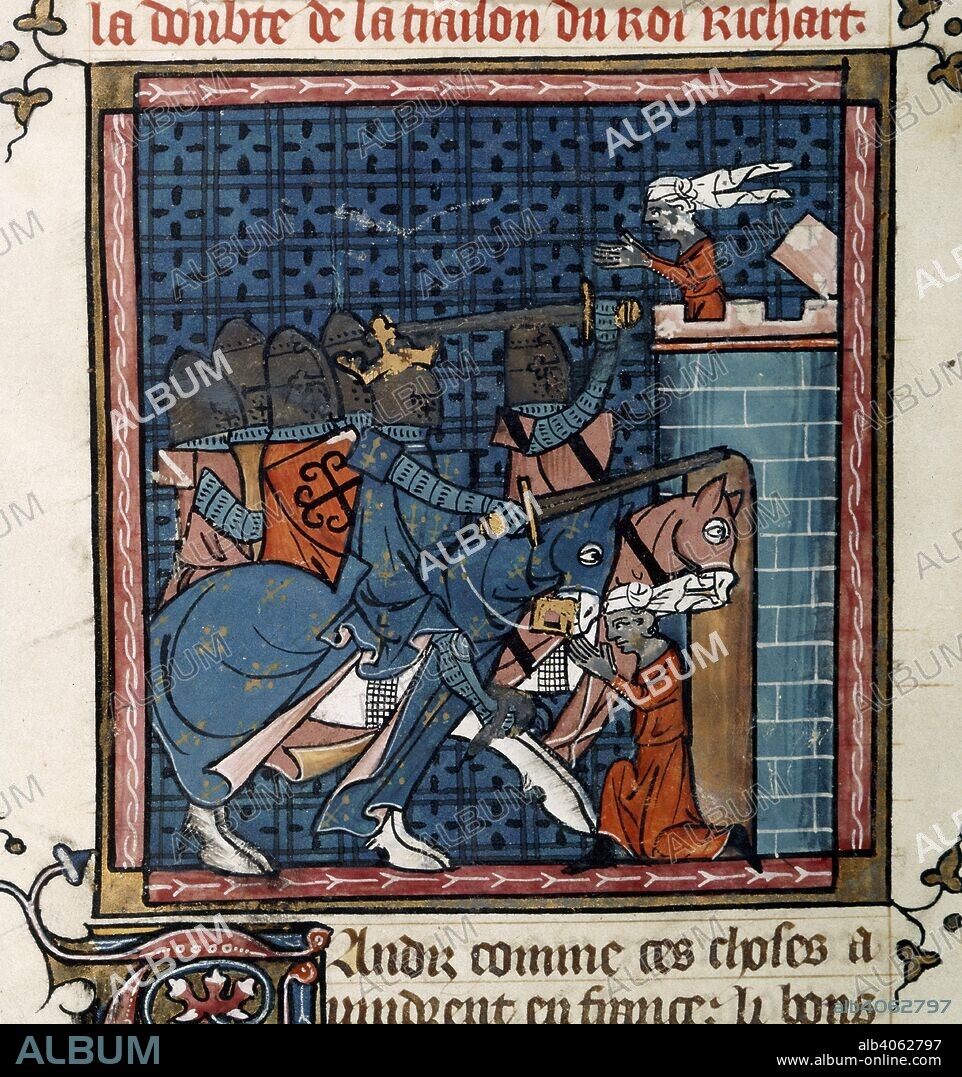 la doubte de la traison du Roi Richart.
ALBUM
alb4062797
Andiz comme ces choses a
vindrent en france: li bons
ALBUM
alb4062797
www.album-online.com